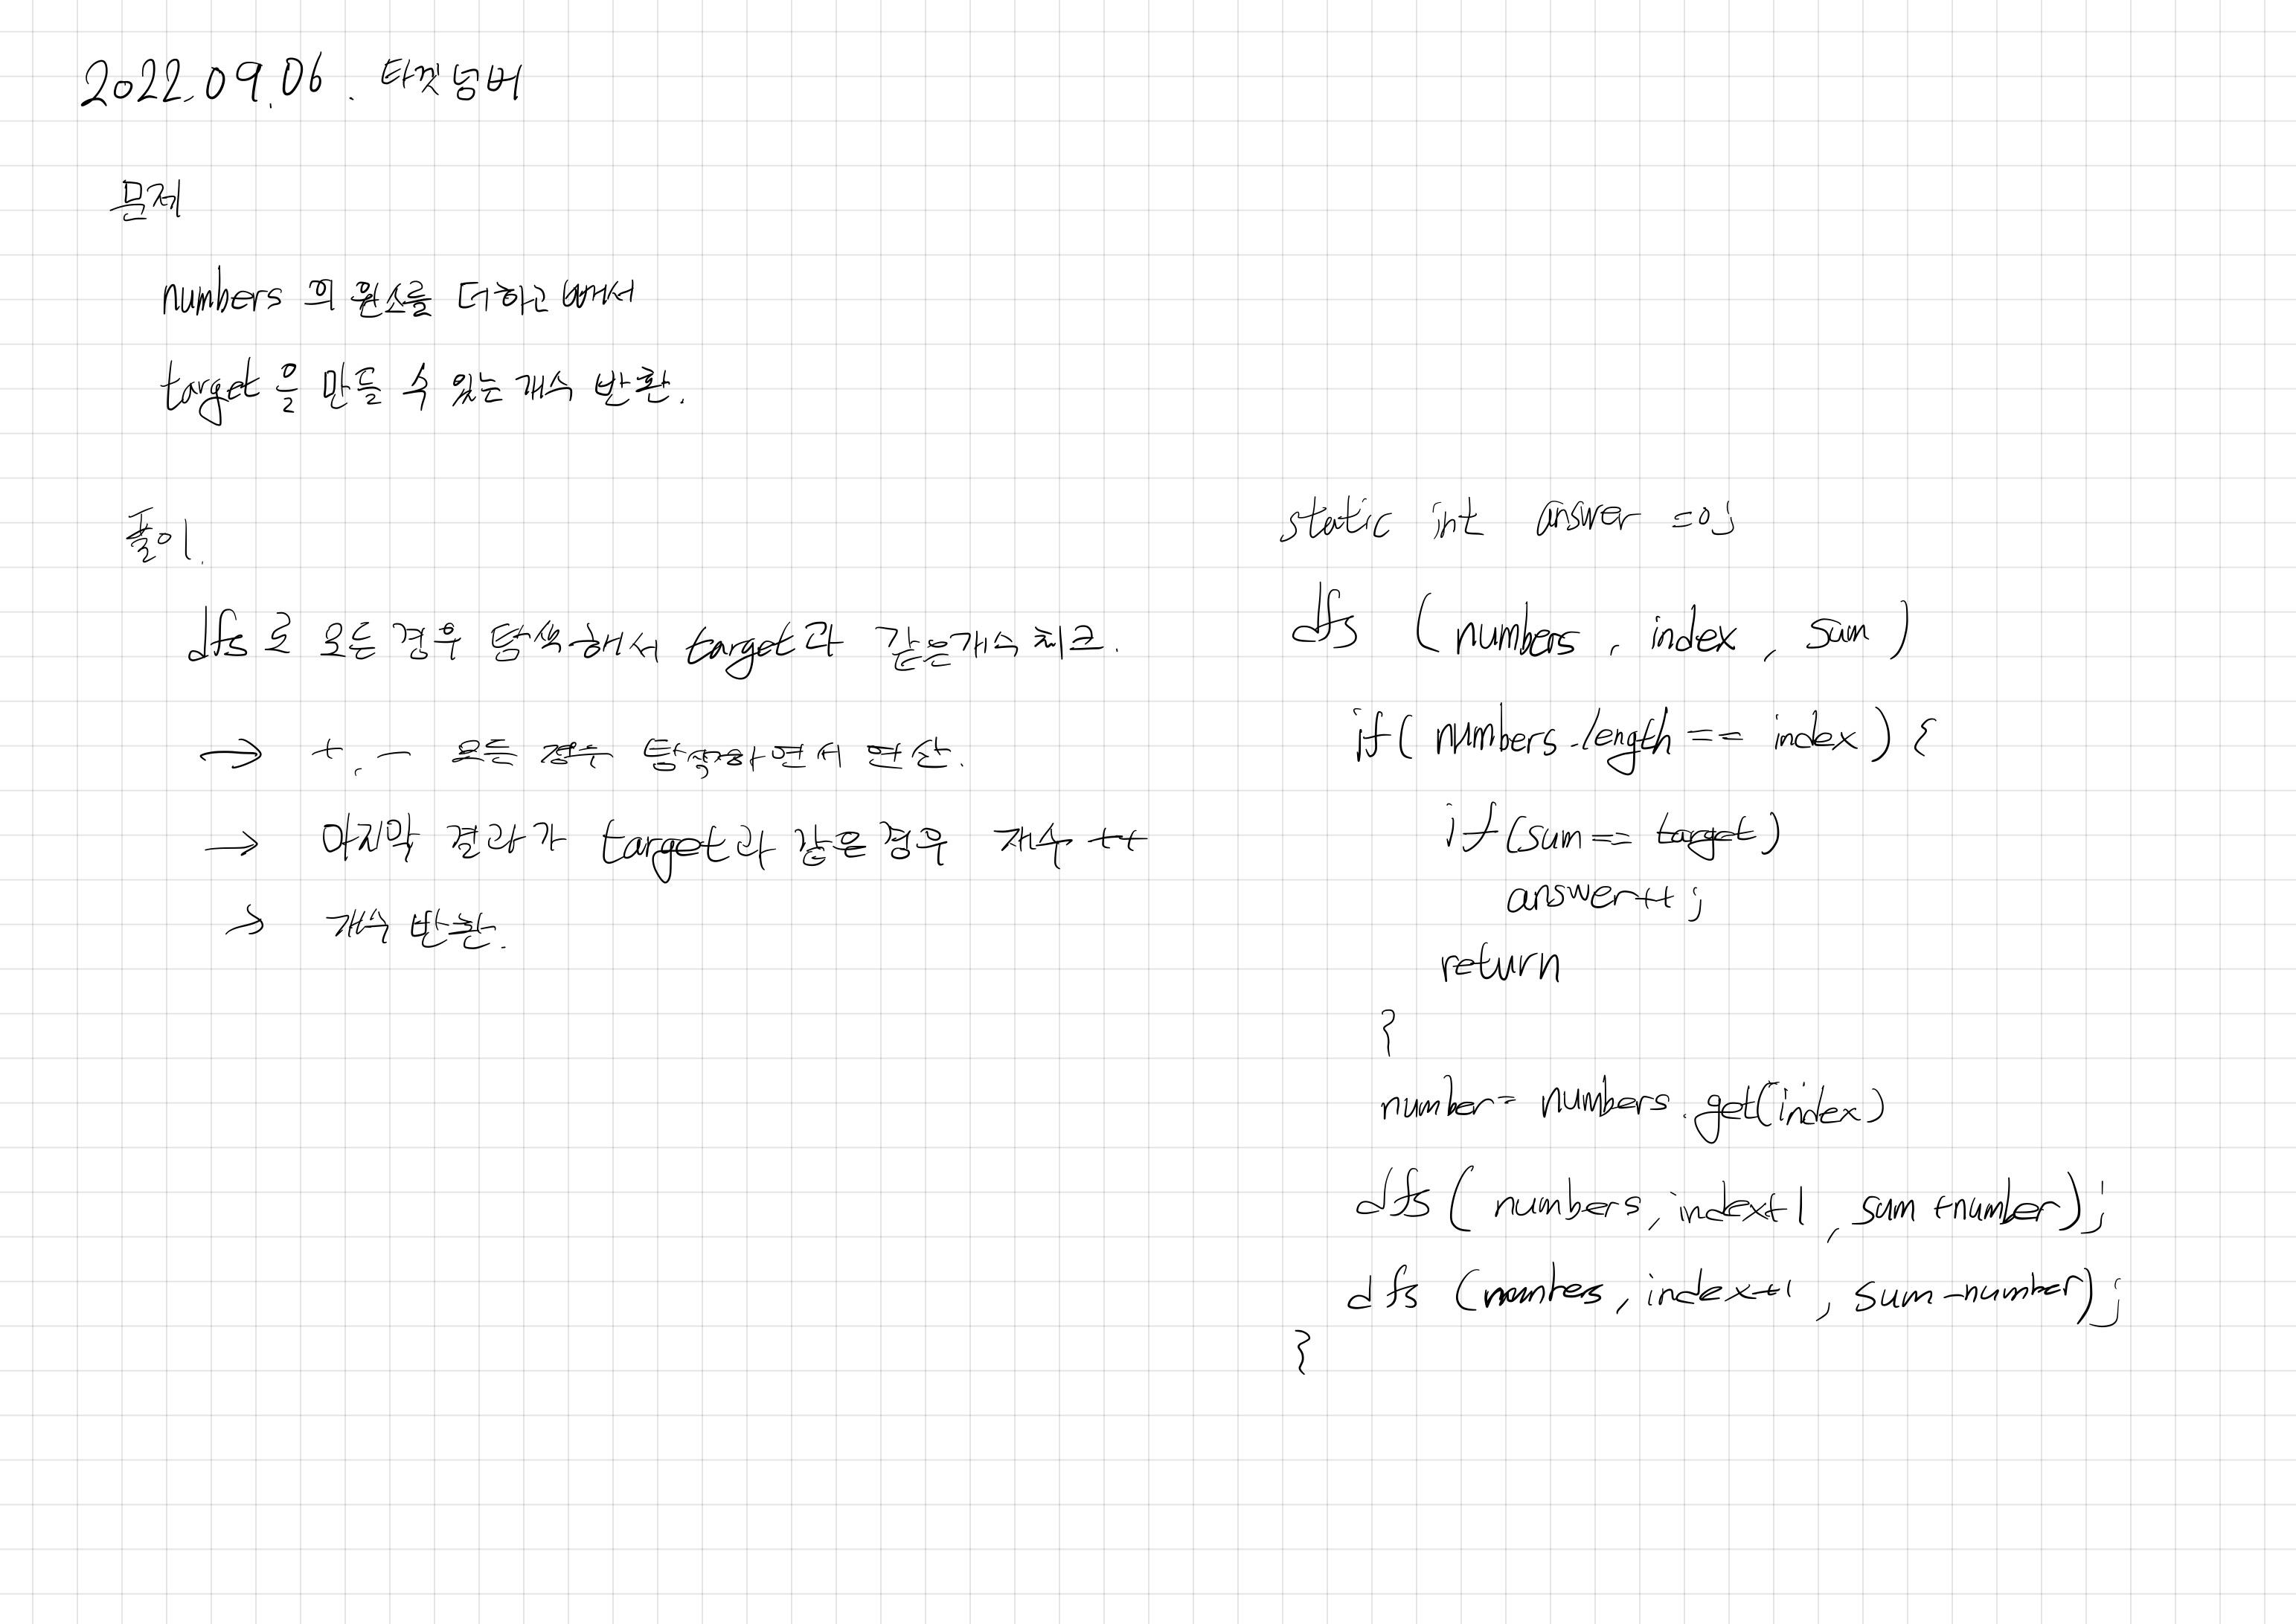 2022.09.06. 타겟넘버
문제
numbers 의 원소를 더하고 빼서
target을 만들 수 있는 개수 반환.
풀이.
dfs로 모든 경우 탐색해서 target과 같은개수 체크.
→ +, - 모든 경우 탐색하면서 연산.
→ 마지막 결과가 target과 같은 경우 개수 ++
→ 개수 반환.
static int answer =0;
dfs (numbers, index, sum)
if( numbers.length == index) {
if(sum == target)
answer++;
return
}
number= numbers.get(index)
dfs ( numbers, index+1, sum +number);
dfs (numbers, index+1, sum-number);
}